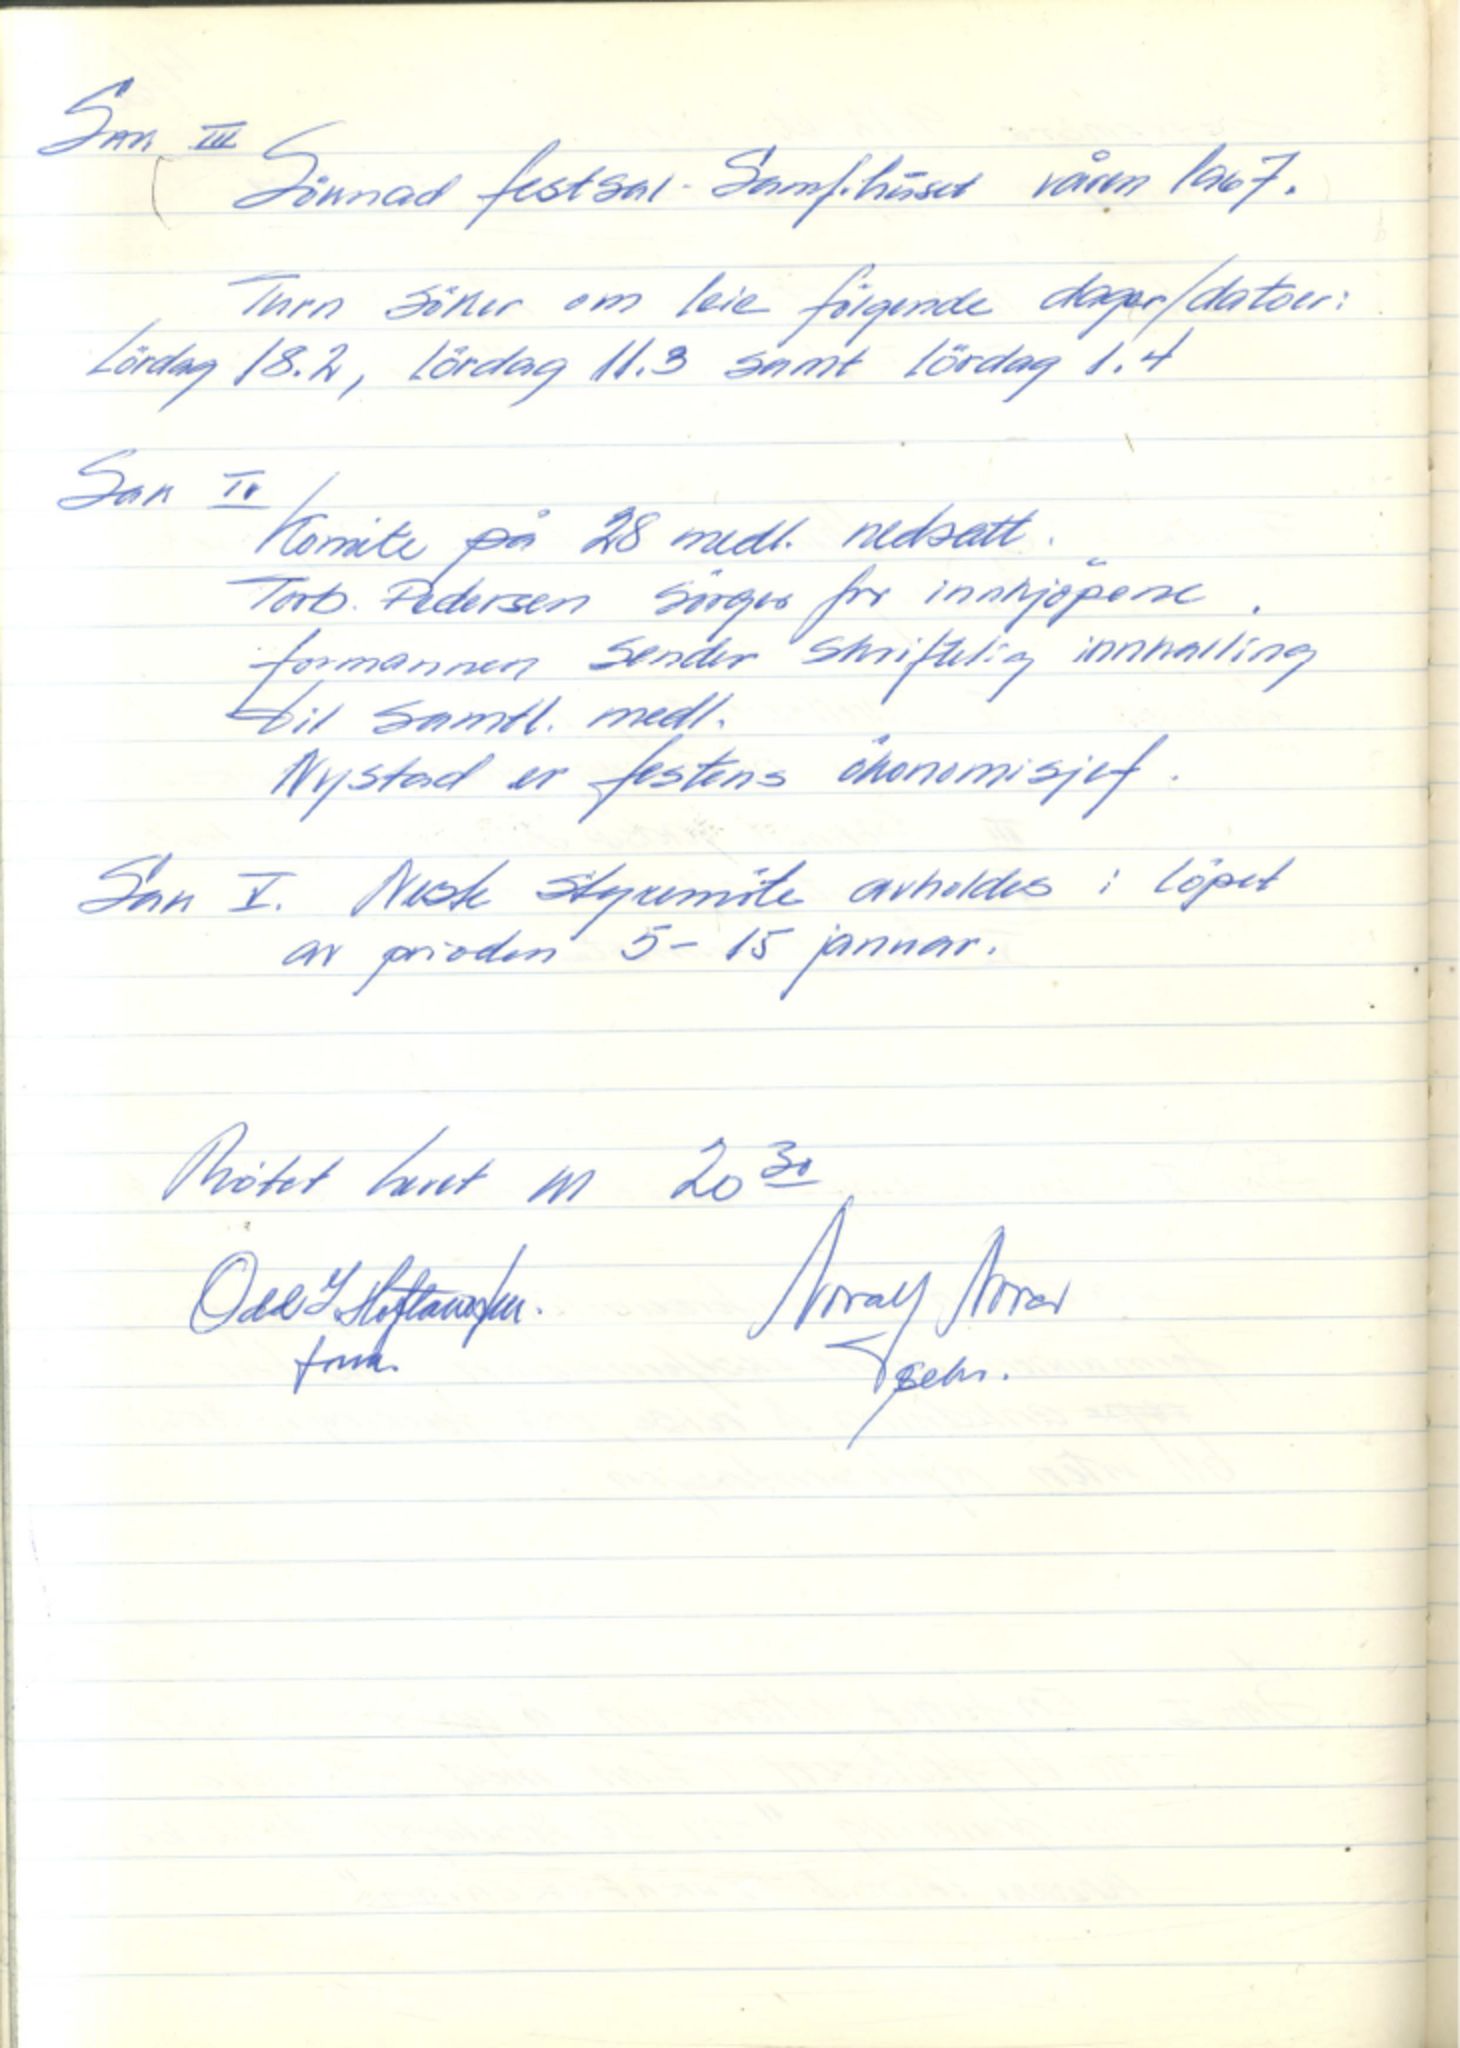 Sak III
Söknad festsal - Samf.huset våren 1967.
Turn söker om leie følgende dager/datoer:
Lördag 18.2, lördag 11.3 samt lördag 1.4
Sak IV
Komite på 28 medl. nedsatt.
Torb. Pedersen sörger for innkjöpene.
formannen sender skriftelig innkalling
til samtl. medl.
Nystad er festens ökonomisjef.
Sak V. Neste styremöte avholdes i löpet
av perioden 5-15 januar.
Mötet hevet kl 20 30
Odd
form.
Noralf
sekr.